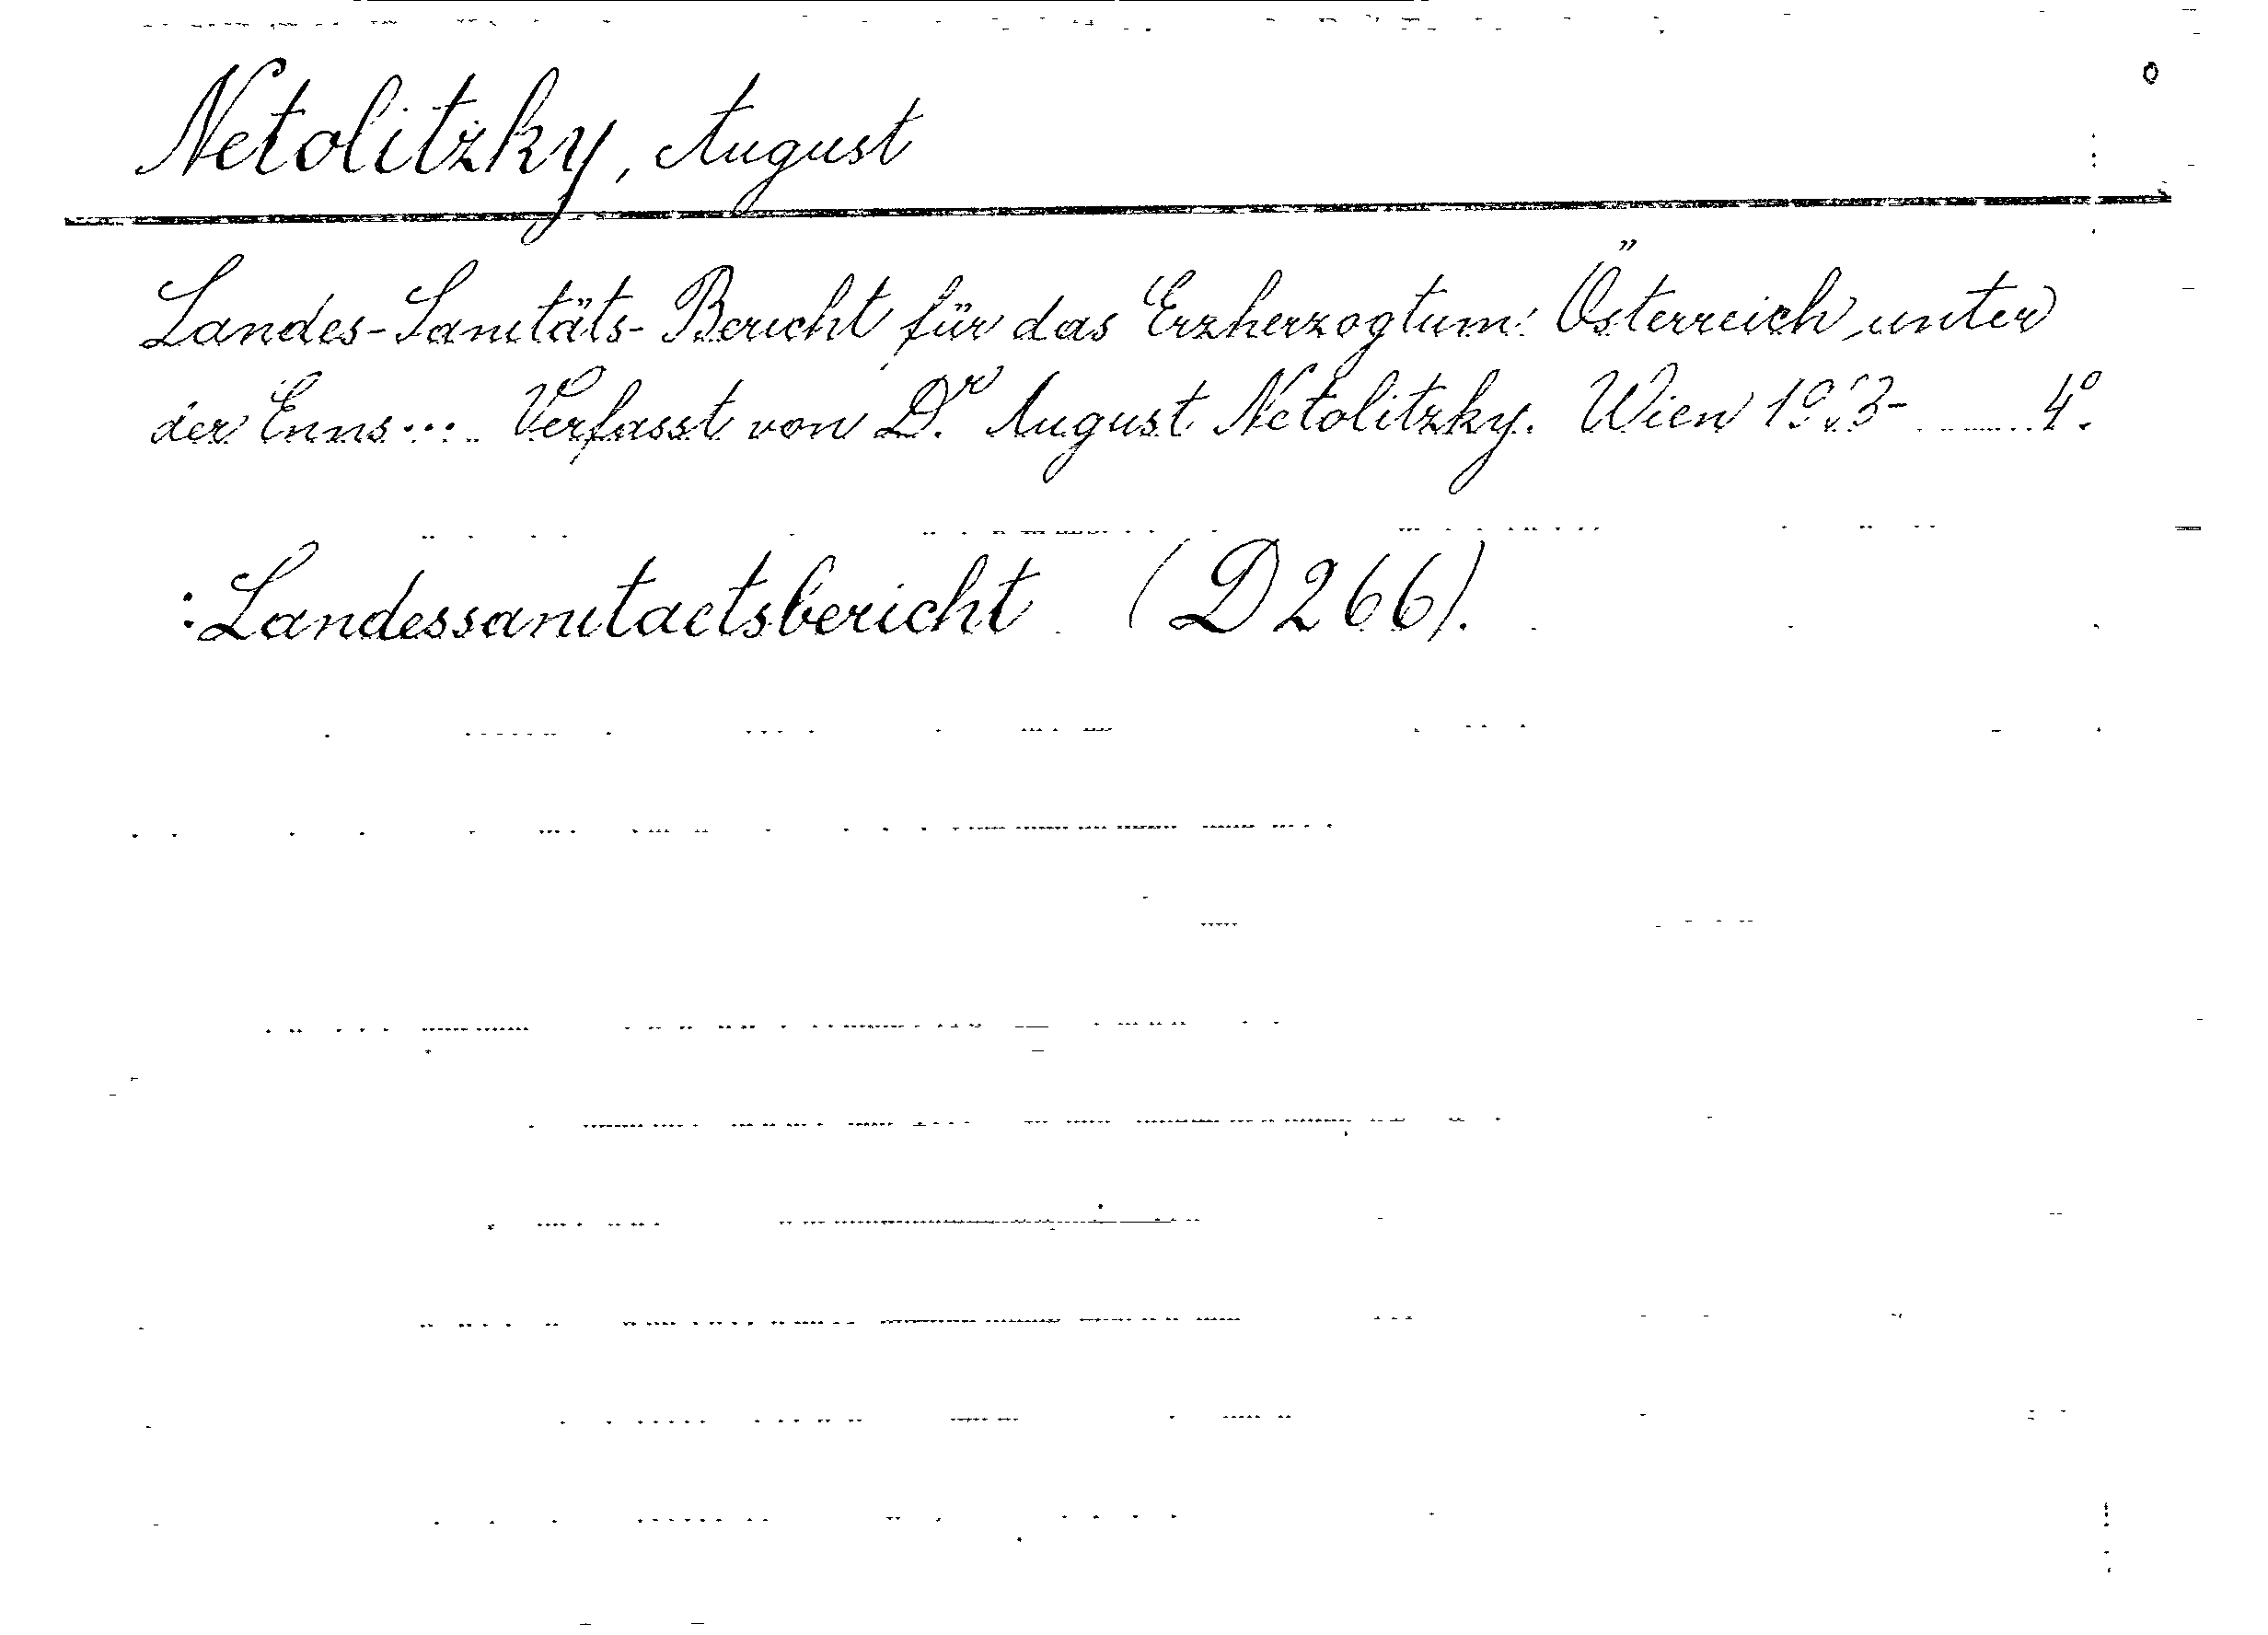 Netolitzky, August
Landes-Sanitäts-Bericht für das Erzherzogtum Österreich unter
der Enns.... Verfasst von Dr. August Netolitzky. Wien 4°.
:Landessanitaetsbericht (D266).